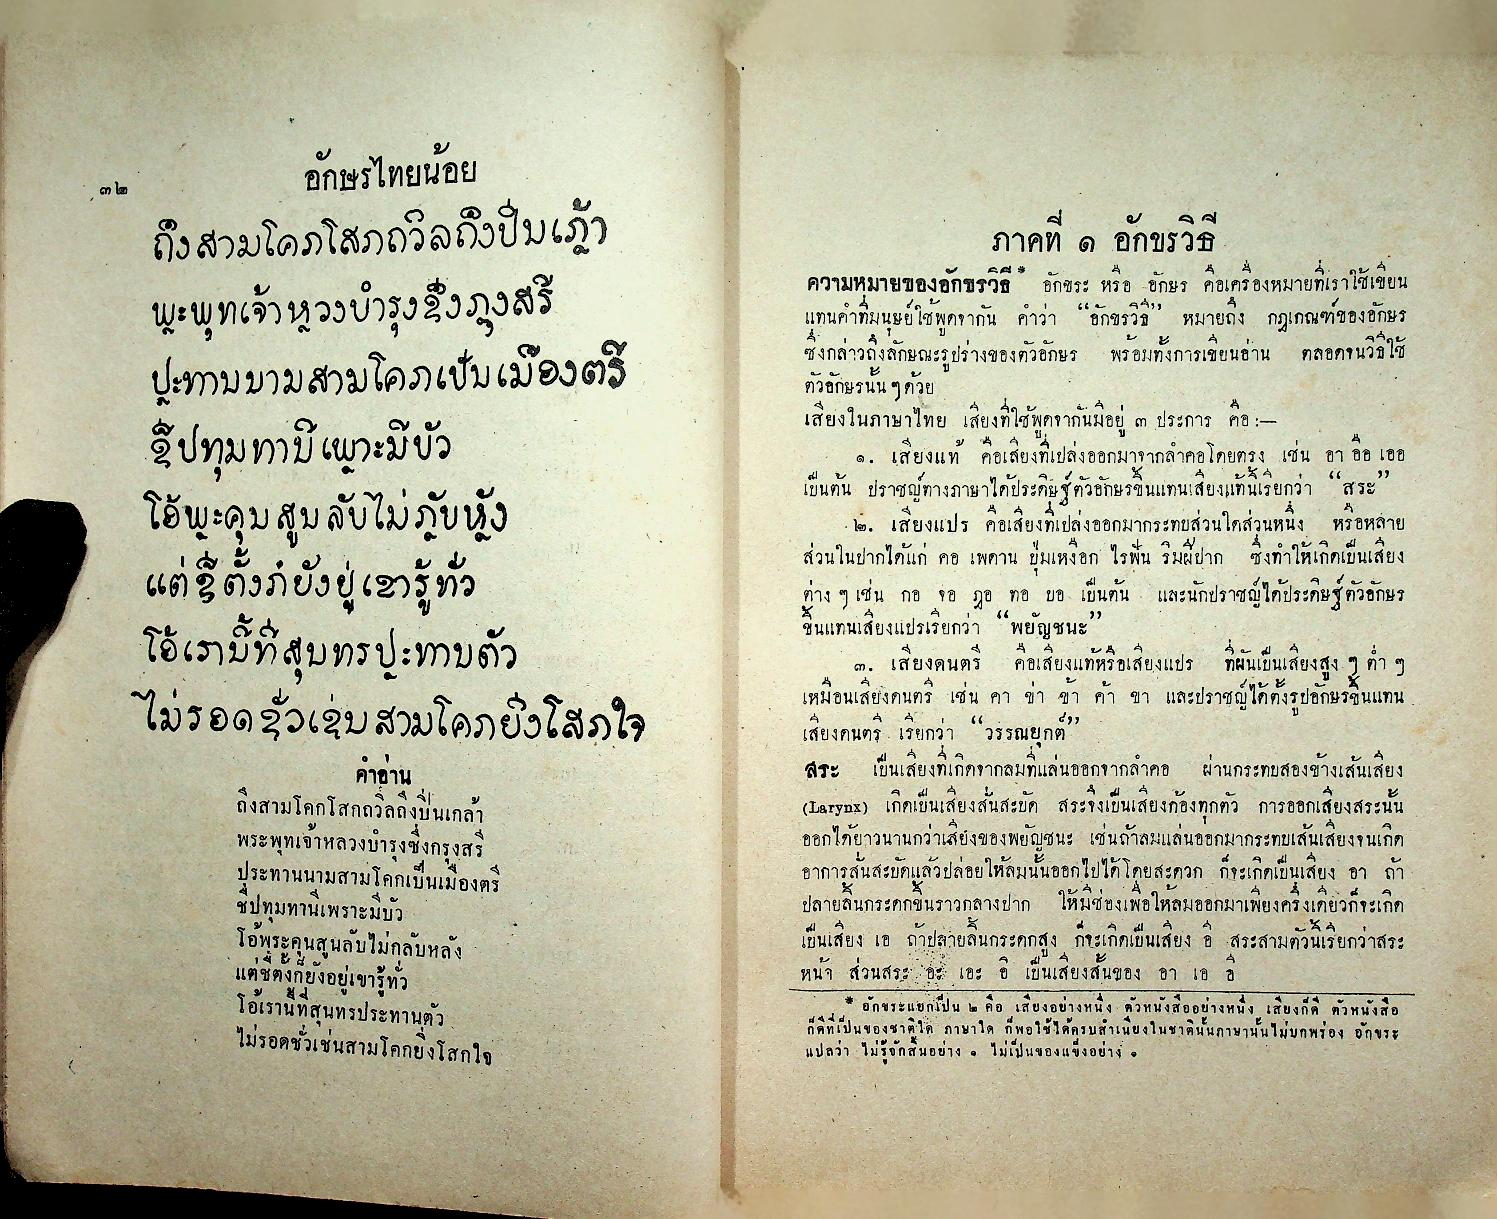 ๓๒
อักษรไทยน้อย
ถึงสามโคกโสกถวิลถึงปิ่นเกล้า
พระพุทเจ้าหลวงบำรุงซึ่งกรุงสรี
ปะทานนามสามโคกเป็นเมืองตรี
ชื่ปทุมทานีเพราะมีบัว
โอ้พระคุนสูนลับไม่กลับหลัง
แต่ชื่ตั้งก็ยังยู่เขารู้ทั่ว
โอ้เรานี้ที่สุนทรประทานตัว
ไม่รอดชั่วเช่นสามโคกยิ่งโสกใจ
คำอ่าน
ถึงสามโคกโสกถวิลถึงปิ่นเกล้า
พระพุทเจ้าหลวงบำรุงซึ่งกรุงสรี
ประทานนามสามโคกเป็นเมืองตรี
ชื่ปทุมทานีเพราะมีบัว
โอ้พระคุนสูนลับไม่กลับหลัง
แต่ชื่ตั้งก็ยังอยู่เขารู้ทั่ว
โอ้เรานี้ที่สุนทรประทานตัว
ไม่รอดชั่วเช่นสามโคกยิ่งโสกใจ
ภาคที่ ๑ อักขรวิธี
ความหมายของอักขรวิธี * อักขระ หรือ อักษร คือเครื่องหมายที่เราใช้เขียน
แทนคำที่มนุษย์ใช้พูดจากัน คำว่า “อักขรวิธี” หมายถึง กฎเกณฑ์ของอักษร
ซึ่งกล่าวถึงลักษณะรูปร่างของตัวอักษร พร้อมทั้งการเขียนอ่าน ตลอดจนวิธีใช้
ตัวอักษรนั้น ๆ ด้วย
เสียงในภาษาไทย เสียงที่ใช้พูดจากันมีอยู่ ๓ ประการ คือ :—
๑. เสียงแท้ คือเสียงที่เปล่งออกมาจากลำคอโดยตรง เช่น อา อือ เออ
เป็นต้น ปราชญ์ทางภาษาได้ประดิษฐ์ตัวอักษรขึ้นแทนเสียงแท้นี้เรียกว่า “สระ”
๒. เสียงแปร คือเสียงที่เปล่งออกมากระทบส่วนใดส่วนหนึ่ง หรือหลาย
ส่วนในปากได้แก่ คอ เพดาน ปุ่มเหงือก ไรฟัน ริมฝีปาก ซึ่งทำให้เกิดเป็นเสียง
ต่าง ๆ เช่น กอ จอ ฎอ ทอ บอ เป็นต้น และนักปราชญ์ได้ประดิษฐ์ตัวอักษร
ขึ้นแทนเสียงแปรเรียกว่า “พยัญชนะ”
๓. เสียงดนตรี คือเสียงแท้หรือเสียงแปร ที่ผันเป็นเสียงสูง ๆ ต่ำ ๆ
เหมือนเสียงดนตรี เช่น คา ข่า ข้า ค้า ขา และปราชญ์ได้ตั้งรูปอักษรขึ้นแทน
เสียงดนตรี เรียกว่า “วรรณยุกต์”
สระ เป็นเสียงที่เกิดจากลมที่แล่นออกจากลำคอ ผ่านกระทบสองข้างเส้นเสียง
(Larynx) เกิดเป็นเสียงสั่นสะบัด สระจึงเป็นเสียงก้องทุกตัว การออกเสียงสระนั้น
ออกได้ยาวนานกว่าเสียงของพยัญชนะ เช่นถ้าลมแล่นออกมากระทบเส้นเสียงจนเกิด
อาการสั่นสะบัดแล้วปล่อยให้ลมนั้นออกไปได้โดยสะดวก ก็จะเกิดเป็นเสียง อา ถ้า
ปลายลิ้นกระดกขึ้นราวกลางปาก ให้มีช่องเพื่อให้ลมออกมาเพียงครึ่งเดียวก็จะเกิด
เป็นเสียง เอ ถ้าปลายลิ้นกระดกสูง ก็จะเกิดเป็นเสียง อี สระสามตัวนี้เรียกว่าสระ
หน้า ส่วนสระ อะ เอะ อิ เป็นเสียงสั้นของ อา เอ อี
* อักขระแยกเป็น ๒ คือ เสียงอย่างหนึ่ง ตัวหนังสืออย่างหนึ่ง เสียงก็ดี ตัวหนังสือ
ก็ดีที่เป็นของชาติใด ภาษาใด ก็พอใช้ได้ครบสำเนียงในชาตินั้นภาษานั้นไม่บกพร่อง อักขระ
แปลว่า ไม่รู้จักสิ้นอย่าง ๑ ไม่เป็นของแข็งอย่าง ๑